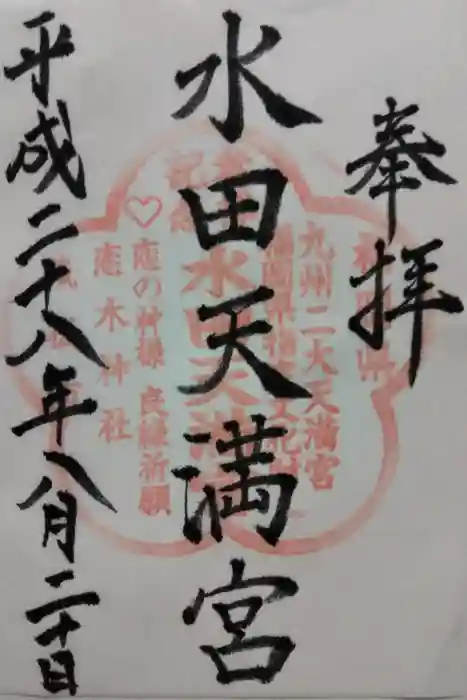 奉拝
水田天満宮
平成二十八年八月二十日
九州二大天満宮
水田天満
♡恋の神様 良縁祈願
恋木神社